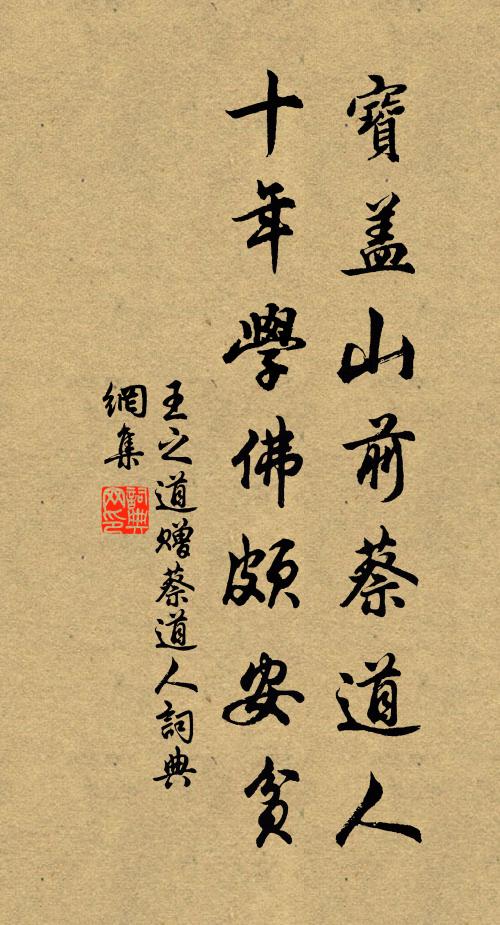 寶盖山前蔡道人
十年學佛頗安貧
王之道贈蔡道人詞典
網集
詞典
网印